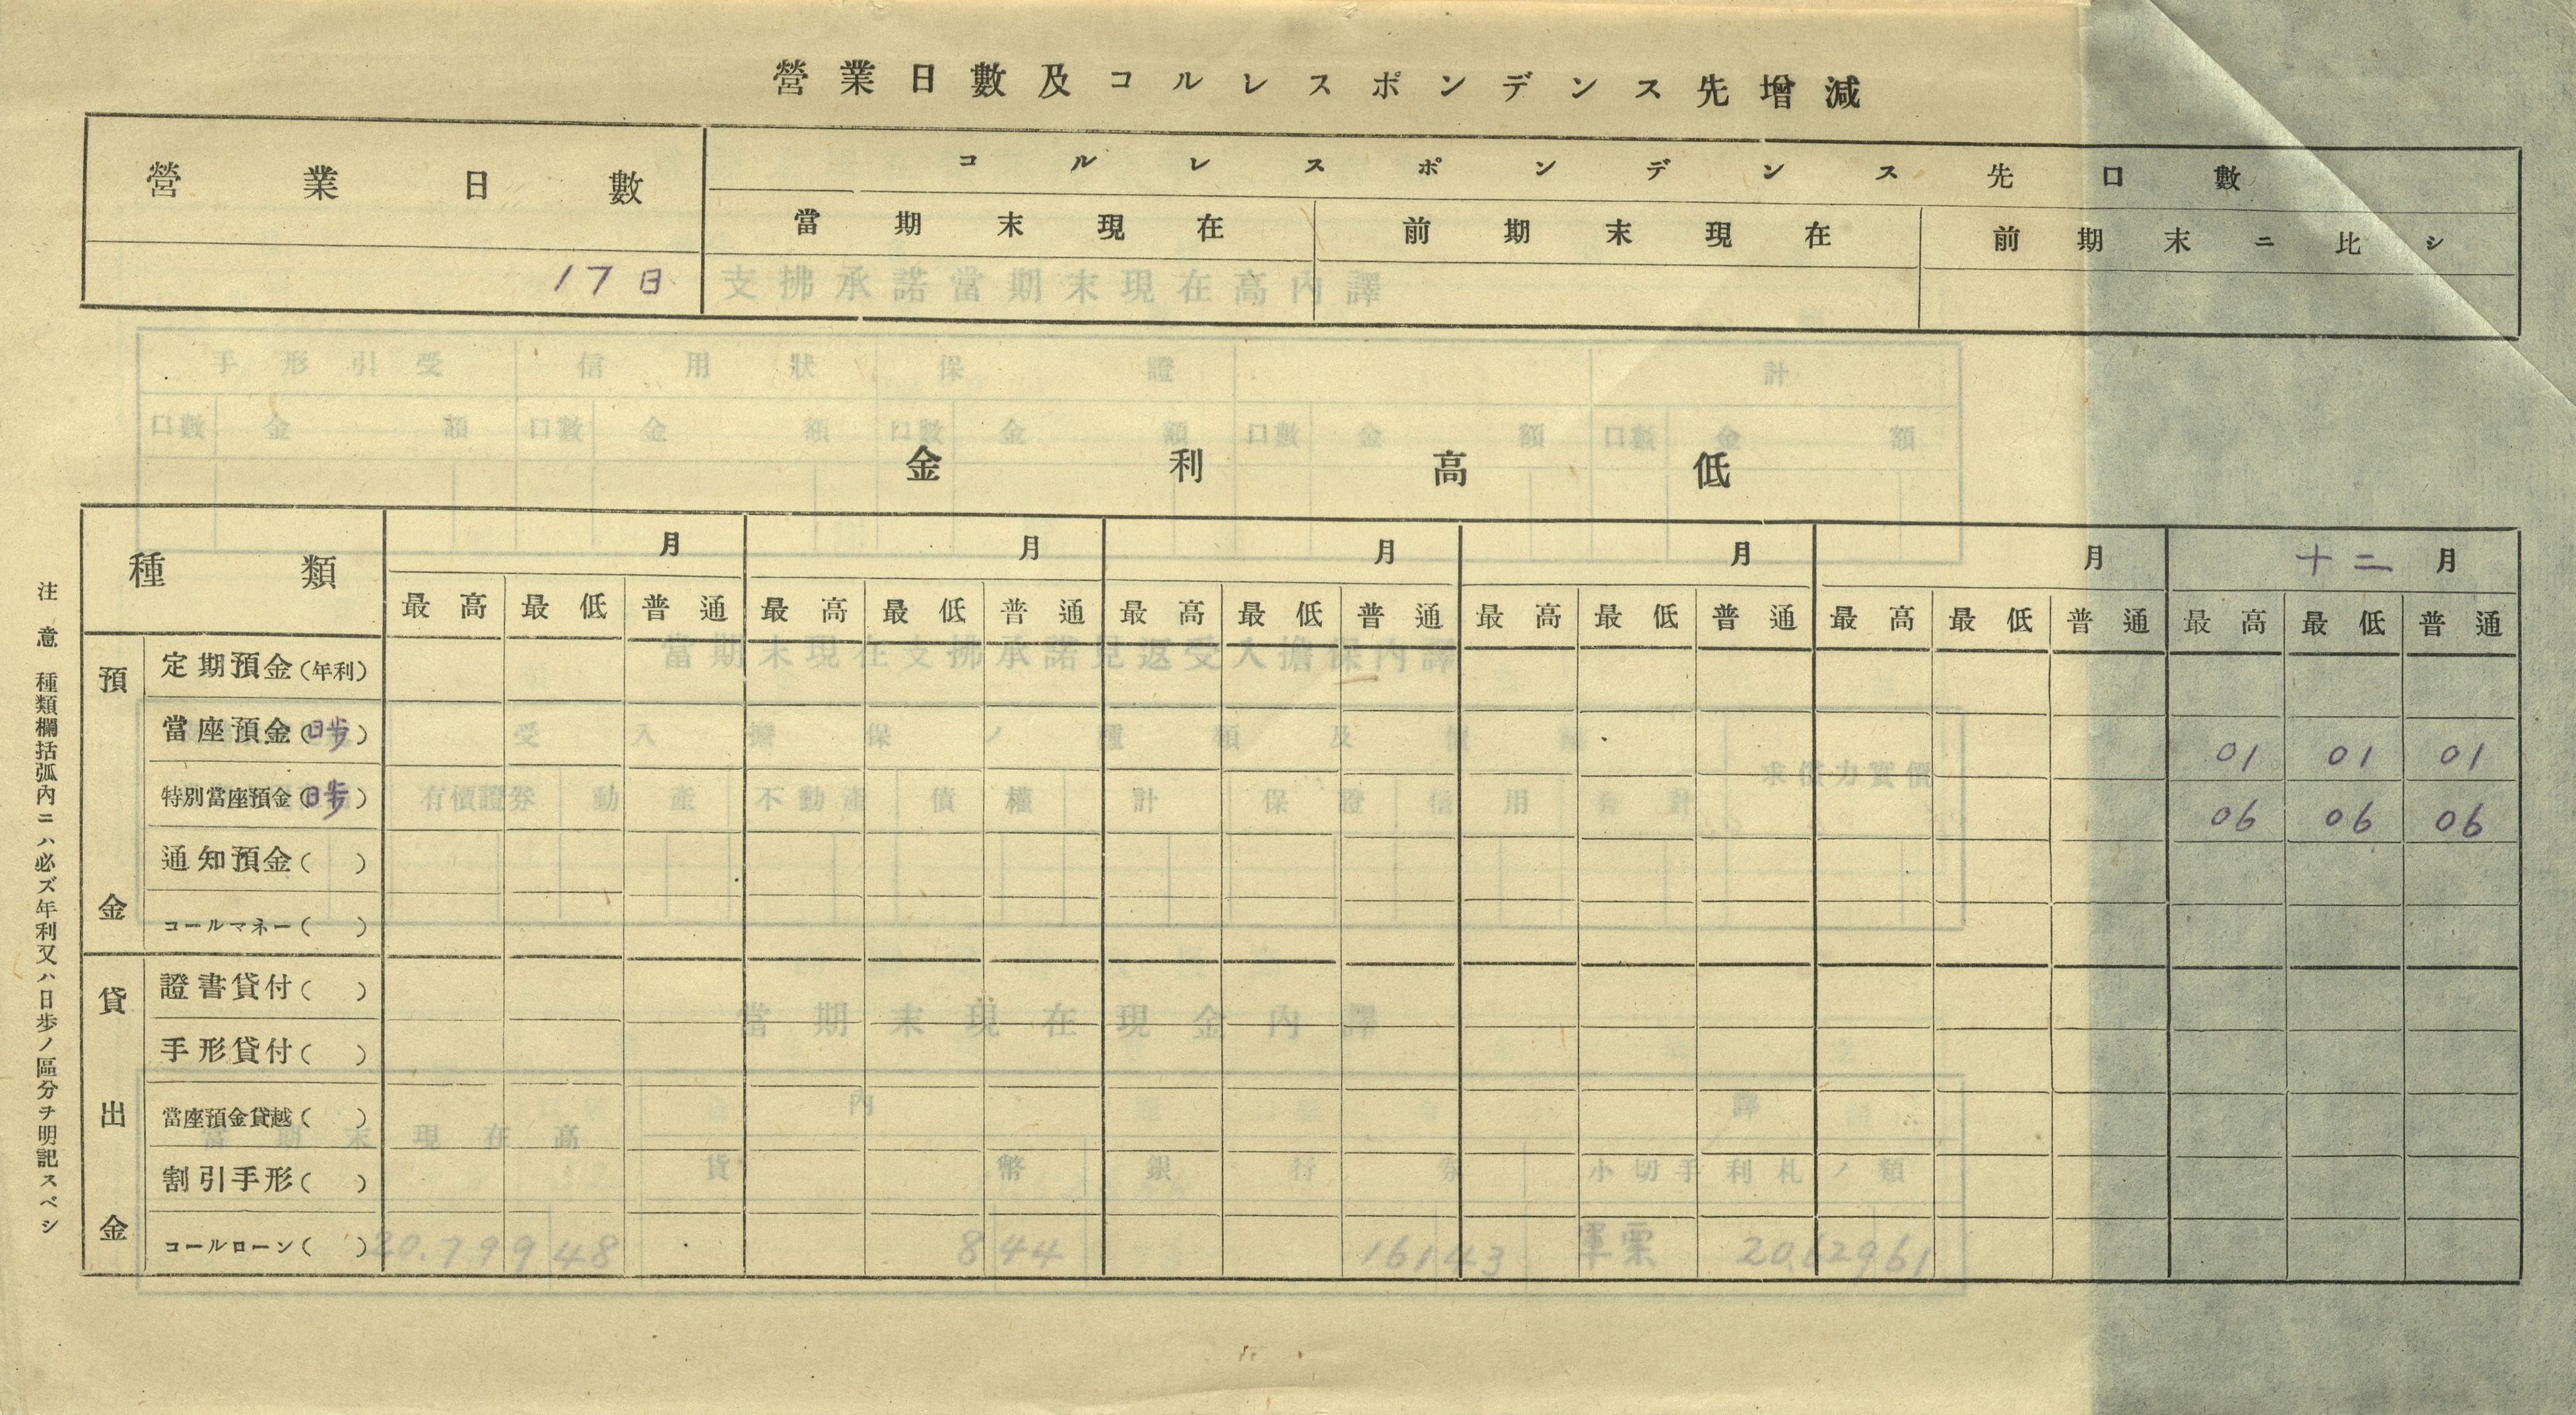 營業日數及コルレスポンデンス先增減
營業日數
コルレスポンデンス先口數
當期末現在 前期末現在 前期末ニ比シ
17日
支拂承諾當期末現在高內譯
手形引受 信用狀 保證 計
口數 金額 口數 金額 口數 金額 口數 金額 口數 金額
金利高低
種類 月 月 月 月 月 十二月
最高 最低 普通 最高 最低 普通 最高 最低 普通 最高 最低 普通 最高 最低 普通 最高 最低 普通
當期末現在支拂承諾見返受入擔保內譯
預金
定期預金(年利)
當座預金(日步) 01 01 01
受入擔保ノ種類及
求償力實價
特別當座預金(日步) 06 06 06
有價證券 動產 不動產 債權 計 保證信用 合計
通知預金( )
コールマネー( )
貸出金
證書貸付( )
當期末現在現金內譯
手形貸付( )
當座預金貸越( )
內譯
當期末現在高
割引手形( )
貨幣 銀行券 小切手利札ノ類
コールローン( )
20.799 48 8 44 161 43 軍票 20.629 61
注意 種類欄括弧內ニハ必ズ年利又ハ日步ノ區分ヲ明記スベシ